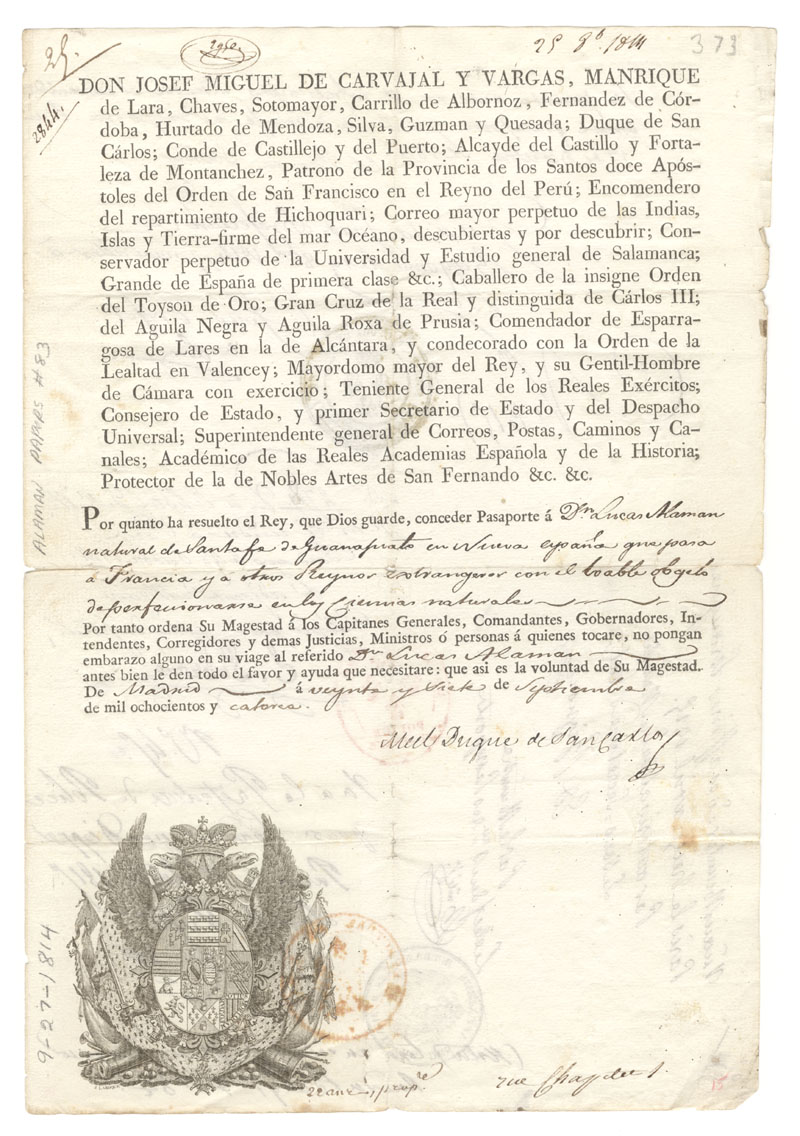 25.
2844.
25 8.e 1814
373
DON JOSEF MIGUEL DE CARVAJAL Y VARGAS, MANRIQUE
de Lara, Chaves, Sotomayor, Carrillo de Albornoz, Fernandez de Cór-
doba, Hurtado de Mendoza, Silva, Guzman y Quesada; Duque de San
Cárlos; Conde de Castillejo y del Puerto; Alcayde del Castillo y Forta-
leza de Montanchez, Patrono de la Provincia de los Santos doce Após-
toles del Orden de San Francisco en el Reyno del Perú; Encomendero
del repartimiento de Hichoquari; Correo mayor perpetuo de las Indias,
Islas y Tierra-firme del mar Océano, descubiertas y por descubrir; Con-
servador perpetuo de la Universidad y Estudio general de Salamanca;
Grande de España de primera clase &c.; Caballero de la insigne Orden
del Toyson de Oro; Gran Cruz de la Real y distinguida de Cárlos III;
del Aguila Negra y Aguila Roxa de Prusia; Comendador de Esparra-
gosa de Lares en la de Alcántara, y condecorado con la Orden de la
Lealtad en Valencey; Mayordomo mayor del Rey, y su Gentil-Hombre
de Cámara con exercicio; Teniente General de los Reales Exércitos;
Consejero de Estado, y primer Secretario de Estado y del Despacho
Universal; Superintendente general de Correos, Postas, Caminos y Ca-
nales; Académico de las Reales Academias Española y de la Historia;
Protector de la de Nobles Artes de San Fernando &c. &c.
Por quanto ha resuelto el Rey, que Dios guarde, conceder Pasaporte á Dn. Lucas Alaman
natural de Santa fe de Guanajuato en Nueva españa que pasa
á Francia y a otros Reynos extrangeros con el loable objeto
de perfeccionarse en las Ciencias naturales
Por tanto ordena Su Magestad á los Capitanes Generales, Comandantes, Gobernadores, In-
tendentes, Corregidores y demas Justicias, Ministros ó personas á quienes tocare, no pongan
embarazo alguno en su viage al referido Dn. Lucas Alaman
antes bien le den todo el favor y ayuda que necesitare: que asi es la voluntad de Su Magestad.
De Madrid á veynte y siete de Septiembre
de mil ochocientos y catorce.
Duque de San Carlos
ALAMAN PAPERS #83
9-27-1814
rue
15